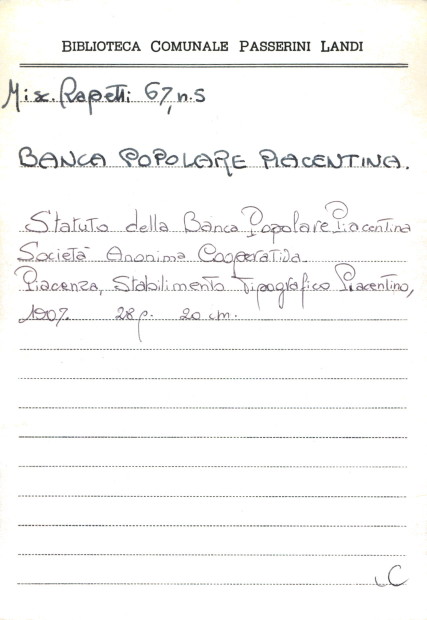 BIBLIOTECA COMUNALE PASSERINI LANDI
Misc. Rapetti 67, n.5
BANCA POPOLARE PIACENTINA.
Statuto della Banca Popolare Piacentina
Società Anonima Cooperativa.
Piacenza, Stabilimento Tipografico Piacentino,
1907. 28 p. 20 cm.
C